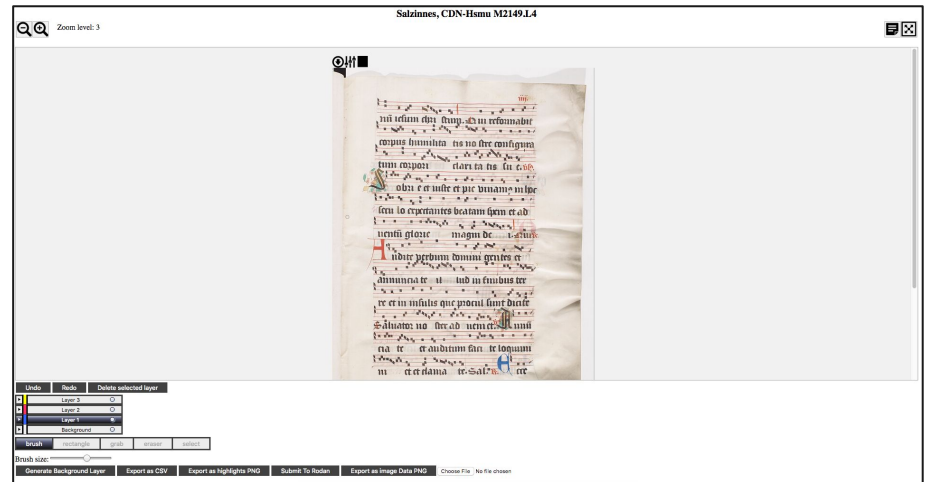 Salzinnes, CDN-Hsmu M2149.L4
Zoom level: 3
nū iesum chri
in reformabit
corpus humilita tis no stre configura
tum corpori clari ta tis su e.
obri e et iuste et pie vivam
secu lo expectantes beatam spem et ad
uentū glorie magni de
Audite verbum domini gentes et
annuncia te il lud in finibus ter
re et in insulis que procul sunt dicite
Saluator no ster ad ueni et.
cia te et auditum faci te loquimi
ni et clama te. Sal?
Undo Redo Delete selected layer
Layer 3
Layer 2
Layer 1
Background
brush rectangle grab eraser select
Brush size:
Generate Background Layer Export as CSV Export as highlights PNG Submit To Rodan Export as image Data PNG Choose File No file chosen